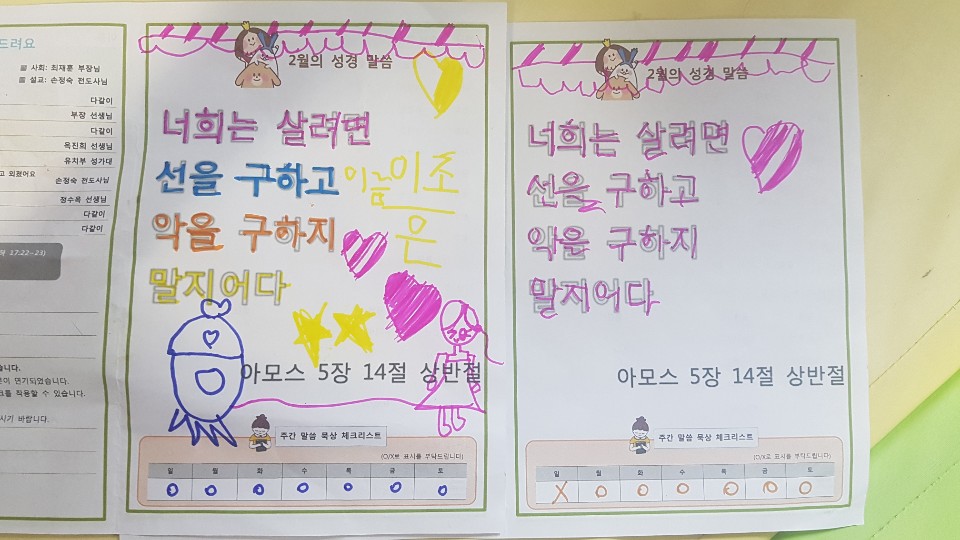 드려요
사회: 최재훈 부장님
설교: 손정숙 전도사님
다같이
부장 선생님
다같이
옥진희 선생님
유치부 성가대
고 외쳤어요 손정숙 전도사님
정수옥 선생님
다같이
다같이
17:22-23)
습니다.
이 연기되었습니다.
를 적용할 수 있습니다.
시기 바랍니다.
2월의 성경 말씀
너희는 살려면
선을 구하고
악을 구하지
말지어다
이름 이조
은
아모스 5장 14절 상반절
주간 말씀 묵상 체크리스트
(O/X로 표시를 부탁드립니다)
일 월 화 수 목 금 토
O O O O O O O
2월의 성경 말씀
너희는 살려면
선을 구하고
악을 구하지
말지어다
아모스 5장 14절 상반절
주간 말씀 묵상 체크리스트
(O/X로 표시를 부탁드립니다)
일 월 화 수 목 금 토
X O O O O O O